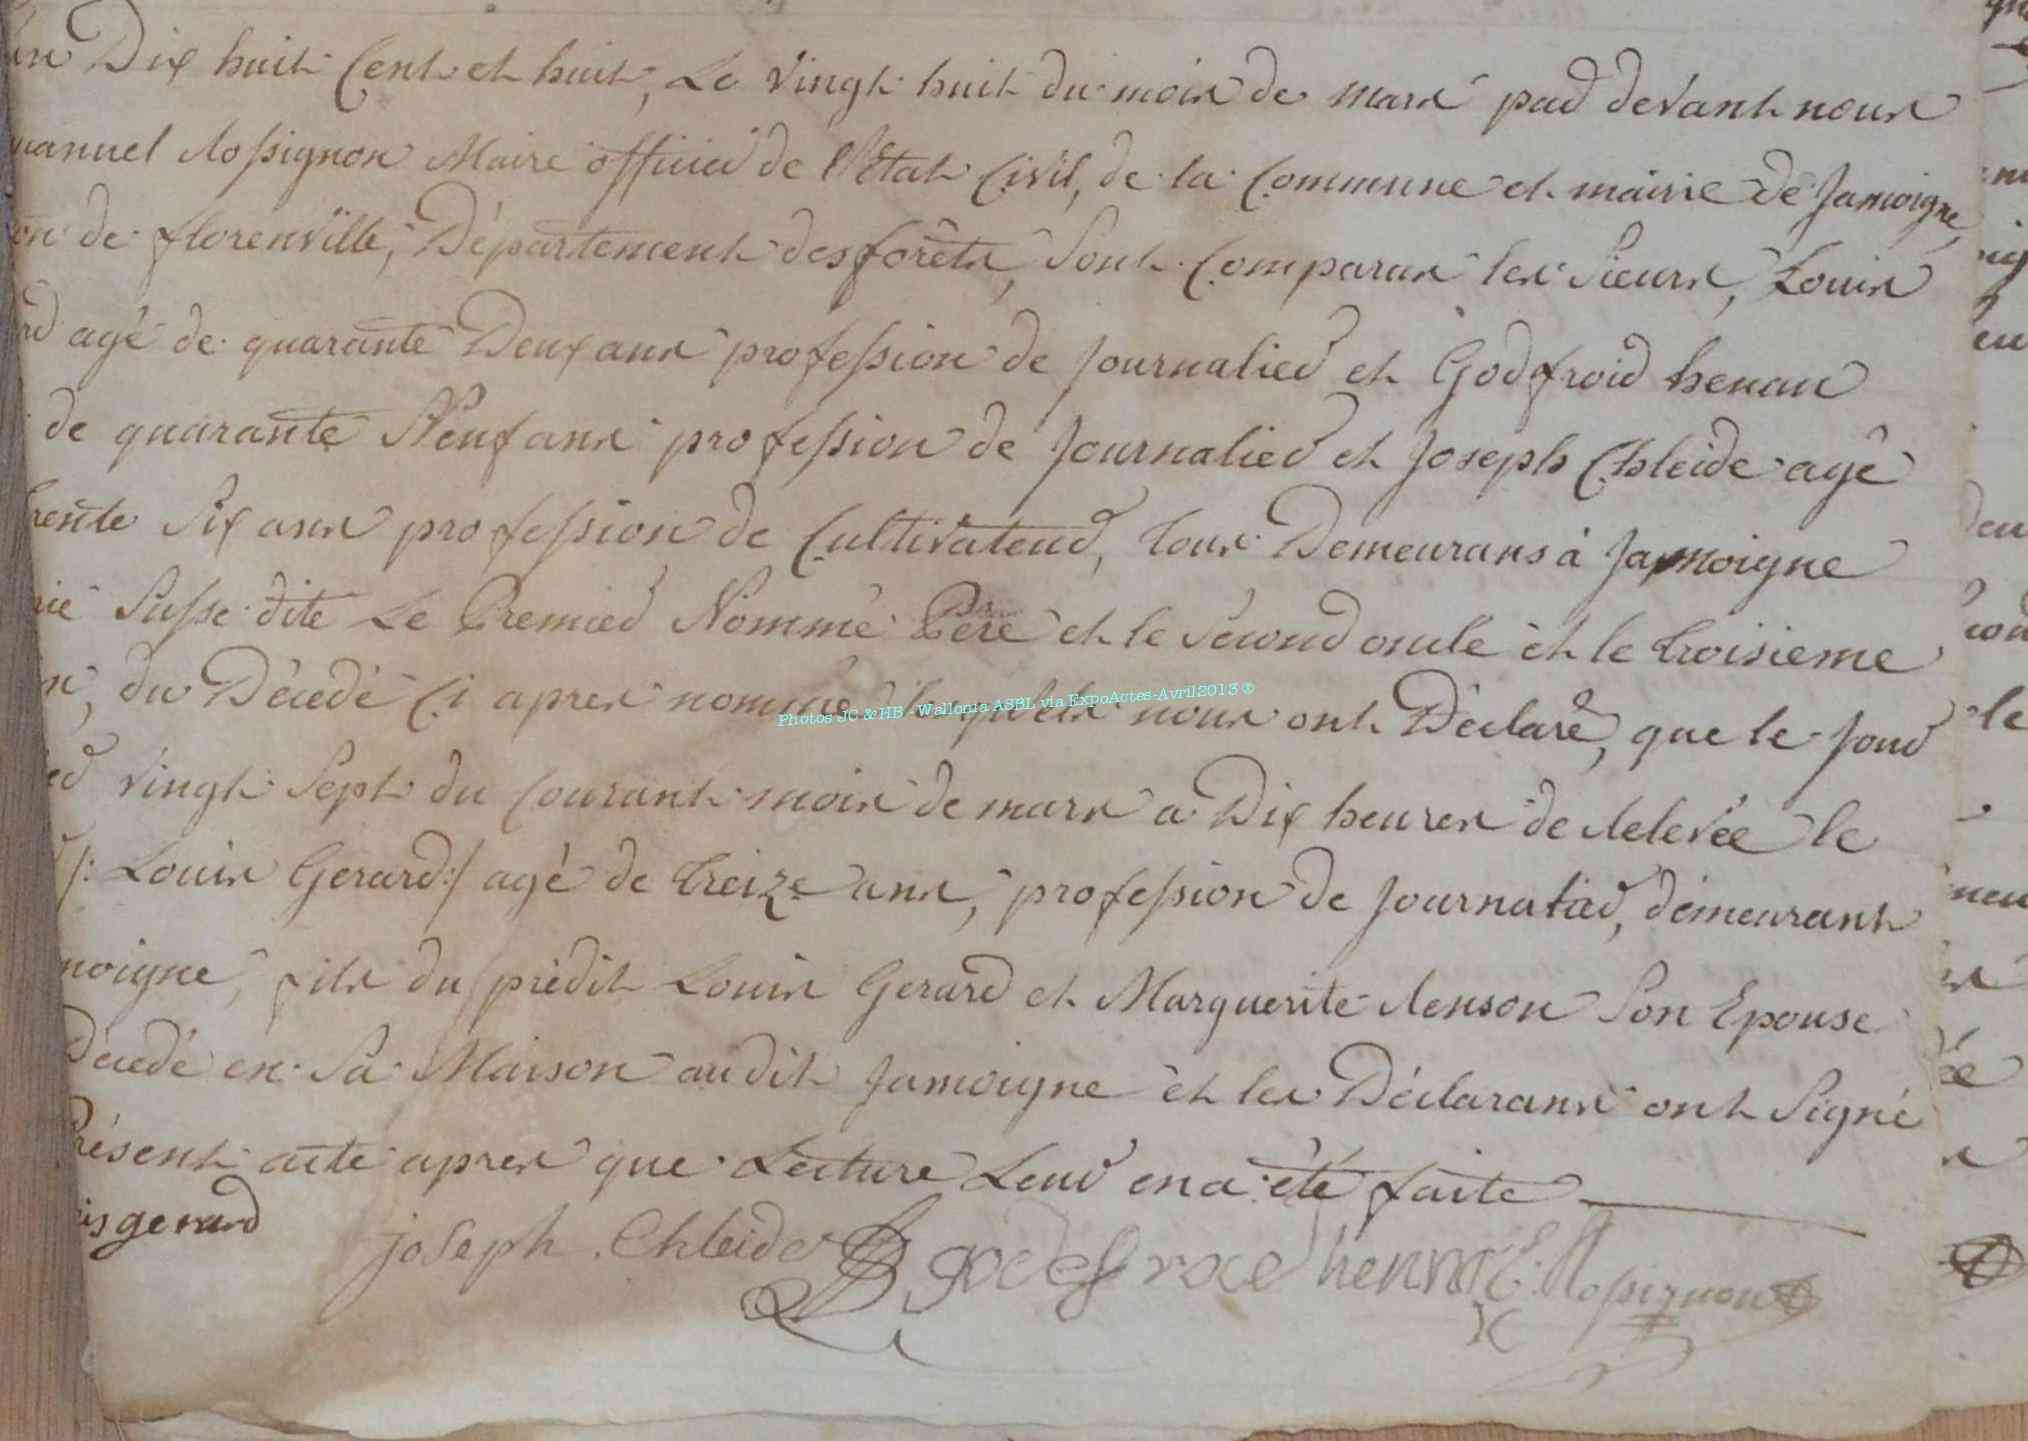 an Dix huit Cent et huit, Le Vingt huit du mois de mars par devant nous
manuel Rossignon Maire officier de l'Etat Civil, de la Commune et mairie de Jamoigne,
on de florenville, Département des forêts, Sont Comparus les Sieurs, Louis
rd agé de quarante Deux ans profession de Journalier et Godfroid henau
de quarante Neuf ans profession de Journalier et Joseph Chleide agé
trente Six ans profession de Cultivateur, tous Demeurans à Jamoigne
rie Susse dite Le Premier Nommé Père et le Second oncle et le troisieme
n, du Décedé Ci apres nommé lesquels nous ont Déclaré, que le Jour
er vingt Sept du Courant mois de mars a Dix heures de Relevée le
/: Louis Gerard :/ agé de treize ans, profession de Journalier, demeurant
moigne, fils du prédit Louis Gerard et Marguerite Renson Son Epouse
Décedé en Sa Maison audit Jamoigne et les Déclarans ont Signé
Présent acte apres que Lecture Leur en a été faite
is gerard joseph . Chleide godefroie henn E. Rossignon
Photos JC & HB - Wallonia ASBL via ExpoActes-Avril2013 ®